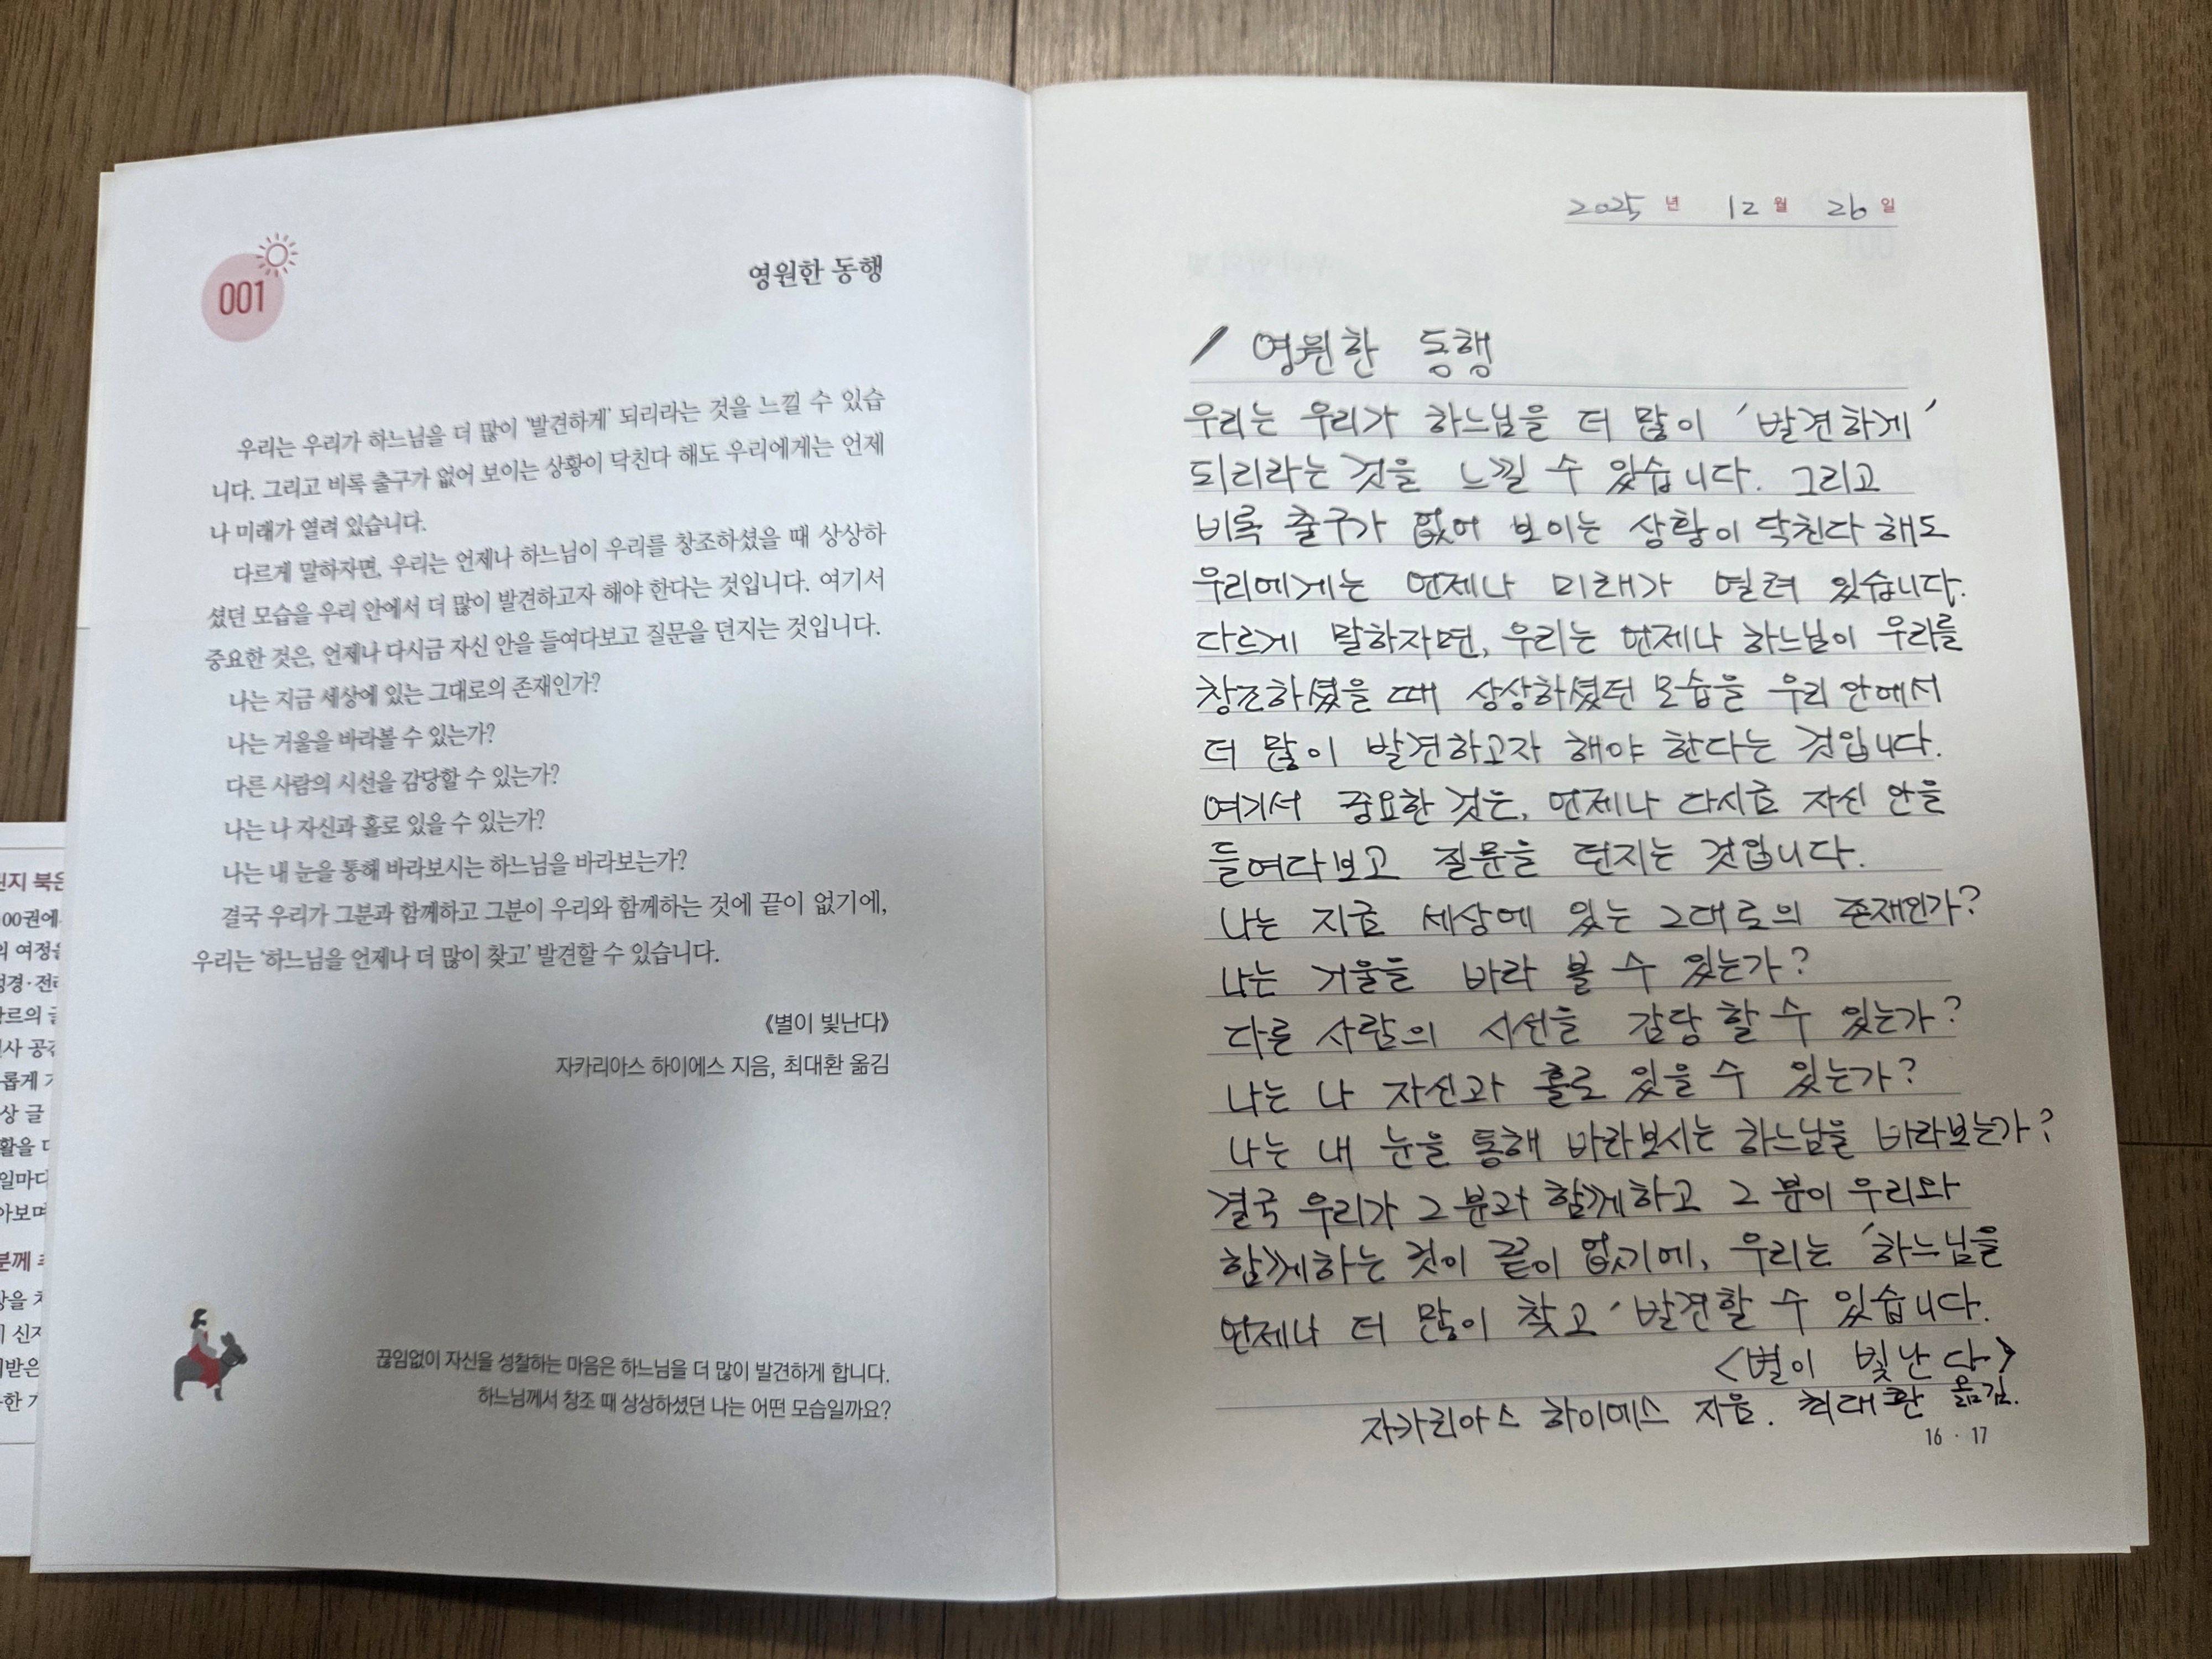 001
영원한 동행
우리는 우리가 하느님을 더 많이 '발견하게' 되리라는 것을 느낄 수 있습
니다. 그리고 비록 출구가 없어 보이는 상황이 닥친다 해도 우리에게는 언제
나 미래가 열려 있습니다.
다르게 말하자면, 우리는 언제나 하느님이 우리를 창조하셨을 때 상상하
셨던 모습을 우리 안에서 더 많이 발견하고자 해야 한다는 것입니다. 여기서
중요한 것은, 언제나 다시금 자신 안을 들여다보고 질문을 던지는 것입니다.
나는 지금 세상에 있는 그대로의 존재인가?
나는 거울을 바라볼 수 있는가?
다른 사람의 시선을 감당할 수 있는가?
나는 나 자신과 홀로 있을 수 있는가?
나는 내 눈을 통해 바라보시는 하느님을 바라보는가?
결국 우리가 그분과 함께하고 그분이 우리와 함께하는 것에 끝이 없기에,
우리는 '하느님을 언제나 더 많이 찾고' 발견할 수 있습니다.
《별이 빛난다》
자카리아스 하이에스 지음, 최대환 옮김
끊임없이 자신을 성찰하는 마음은 하느님을 더 많이 발견하게 합니다.
하느님께서 창조 때 상상하셨던 나는 어떤 모습일까요?
2025년 12월 26일
/ 영원한 동행
우리는 우리가 하느님을 더 많이 '발견하게'
되리라는 것을 느낄 수 있습니다. 그리고
비록 출구가 없어 보이는 상황이 닥친다 해도
우리에게는 언제나 미래가 열려 있습니다.
다르게 말하자면, 우리는 언제나 하느님이 우리를
창조하셨을 때 상상하셨던 모습을 우리 안에서
더 많이 발견하고자 해야 한다는 것입니다.
여기서 중요한 것은, 언제나 다시금 자신 안을
들여다보고 질문을 던지는 것입니다.
나는 지금 세상에 있는 그대로의 존재인가?
나는 거울을 바라 볼 수 있는가?
다른 사람의 시선을 감당 할 수 있는가?
나는 나 자신과 홀로 있을 수 있는가?
나는 내 눈을 통해 바라보시는 하느님을 바라보는가?
결국 우리가 그 분과 함께하고 그 분이 우리와
함께하는 것이 끝이 없기에, 우리는 '하느님을
언제나 더 많이 찾고' 발견할 수 있습니다.
<별이 빛난다>
자카리아스 하이에스 지음. 최대환 옮김.
16 · 17